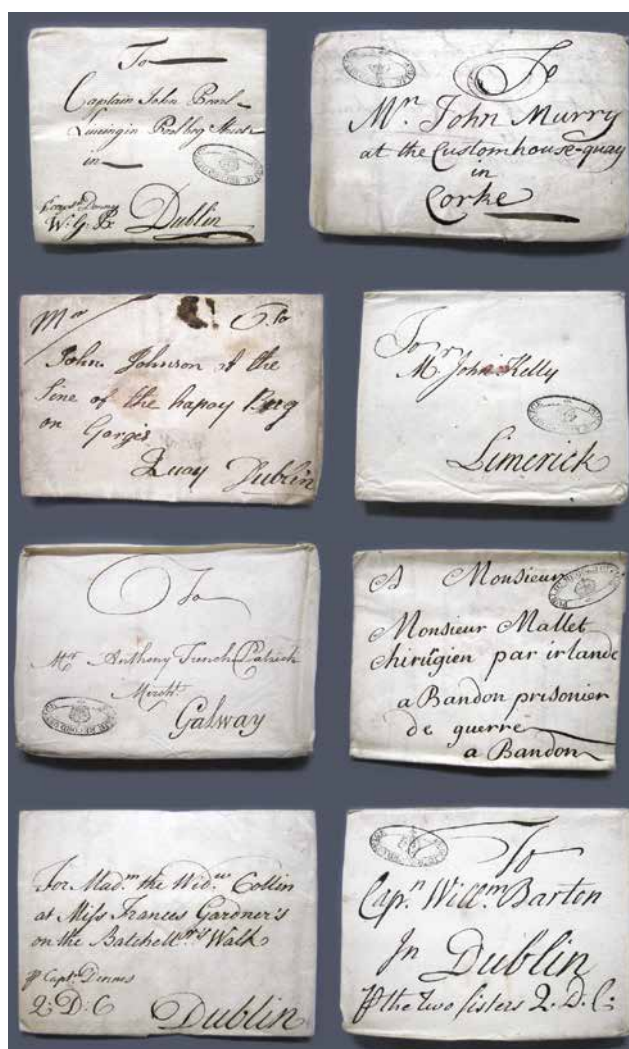 To
Captain John
in
pr Capt Denny
W. G. P.
Dublin
To
Mr. John Murry
at the Customhouse-quay
in
Corke
Mr To
John Johnson at the
Sine of the hapay
on Gorgis
Quay Dublin
To
Mr John Kelly
Limerick
To
Mr Anthony French Patrick
Mercht.
Galway
A Monsieur
Monsieur Mallet
chirugien par irlande
a Bandon prisonier
de guerre
a Bandon
For Madm the Widw Collin
at Miss Frances Gardner's
on the Batchellors Walk
Capt. Dennes
2: D: C
Dublin
To
Capn Willm Barton
In Dublin
the two sisters 2. D. C.